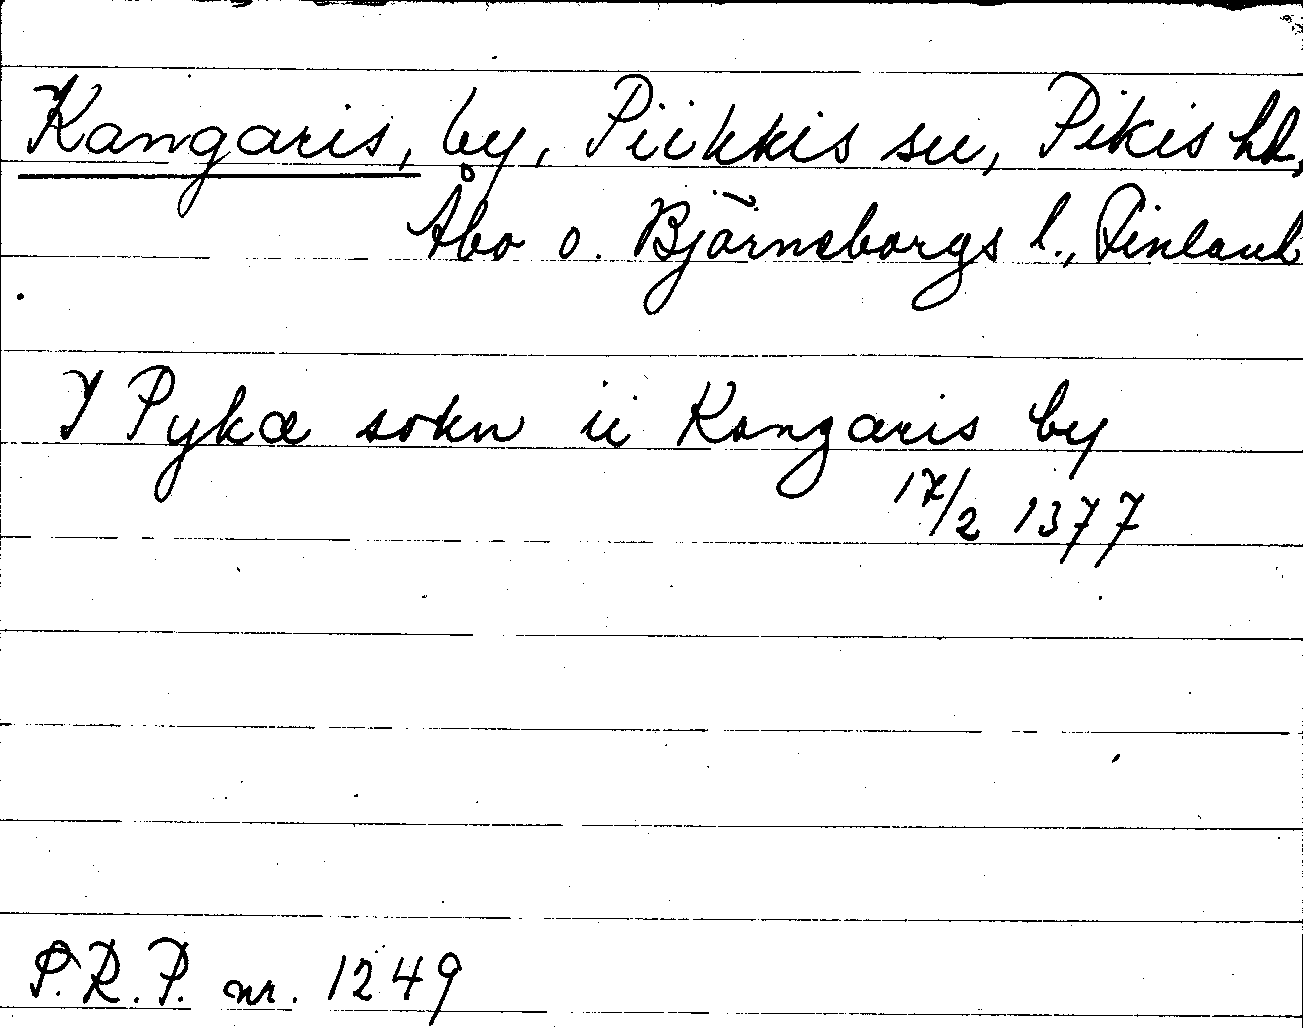 Kangaris, by, Piikkis sn, Pikis hd,
Åbo o. Björneborgs l., Finland
I Pykæ sokn ii Kangaris by
17/2 1377
P.R.P. nr. 1249